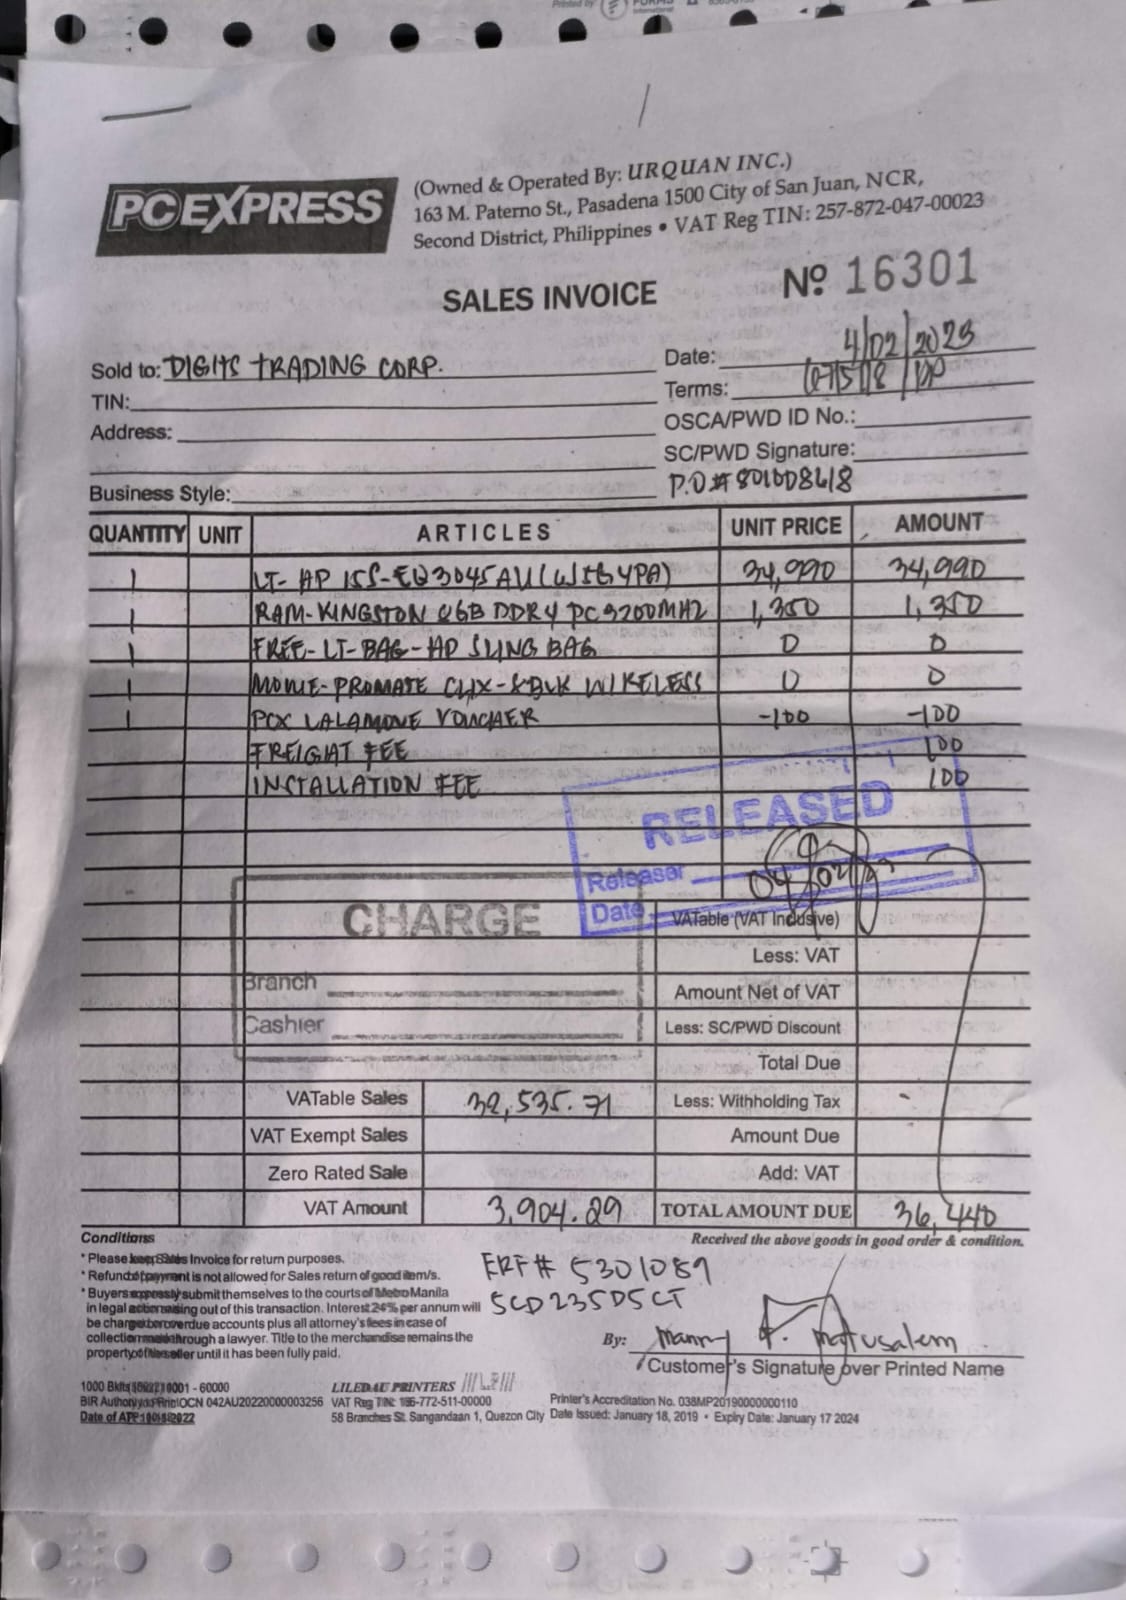 PCEXPRESS
(Owned & Operated By: URQUAN INC.)
163 M. Paterno St., Pasadena 1500 City of San Juan, NCR,
Second District, Philippines • VAT Reg TIN: 257-872-047-00023
SALES INVOICE
Nº 16301
Sold to: DIGITS TRADING CORP.
Date: 4/02/2023
TIN:
Terms:
Address:
OSCA/PWD ID No.:
SC/PWD Signature:
Business Style:
P.O#
QUANTITY UNIT ARTICLES UNIT PRICE AMOUNT
1 LT-HP 15S-EQ3045AU 34,990 34,990
1 RAM-KINGSTON 8GB DDR4 PC3200MHZ 1,350 1,350
1 FREE-LT-BAG-HP SLING BAG 0 0
1 PROMATE CLIX-8 BLK WIRELESS 0 0
1 PCX LALAMOVE VOUCHER -100 -100
FREIGHT FEE 100
INSTALLATION FEE 100
RELEASED
Releaser
Date 04/02/23
CHARGE
VATable (VAT Inclusive)
Less: VAT
Branch
Amount Net of VAT
Cashier
Less: SC/PWD Discount
Total Due
VATable Sales 32,535.71 Less: Withholding Tax -
VAT Exempt Sales Amount Due
Zero Rated Sale Add: VAT
VAT Amount 3,904.29 TOTAL AMOUNT DUE 36,440
Conditions
Received the above goods in good order & condition.
* Please keep Sales Invoice for return purposes.
* Refund of payment is not allowed for Sales return of good item/s.
* Buyers expressly submit themselves to the courts of Metro Manila
in legal action arising out of this transaction. Interest 24% per annum will
be charged on overdue accounts plus all attorney's fees in case of
collection made through a lawyer. Title to the merchandise remains the
property of the seller until it has been fully paid.
ERF# 5301089
5CD235D5CT
By: Manny F. Matusalem
Customer's Signature over Printed Name
1000 Bklts 0001 - 60000
BIR Authority to Print OCN 042AU20220000003256
Date of ATP
LILEDAU PRINTERS
VAT Reg TIN: 186-772-511-00000
58 Branches St. Sangandaan 1, Quezon City
Printer's Accreditation No. 038MP20190000000110
Date Issued: January 18, 2019 • Expiry Date: January 17 2024